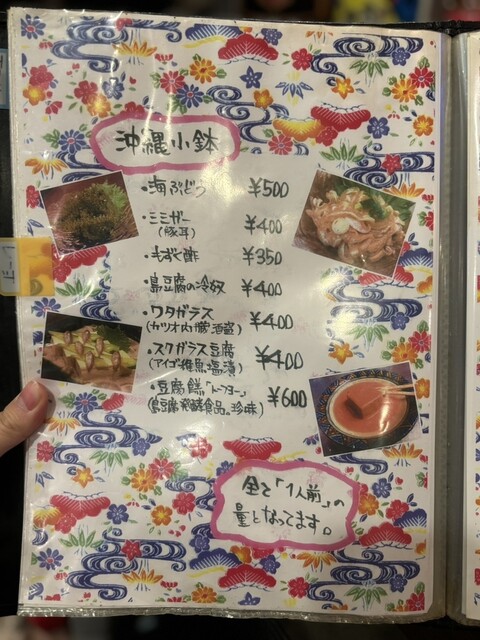 沖縄小鉢
・海ぶどう ¥500
・ミミガー ¥400
(豚耳)
・もずく酢 ¥350
・島豆腐の冷奴 ¥400
・ワタガラス ¥400
(カツオ内臓酒盗)
・スクガラス豆腐 ¥400
(アイゴ稚魚塩漬)
・豆腐餻「トーフヨー」 ¥600
(島豆腐発酵食品。珍味)
全て「1人前」の
量となってます。